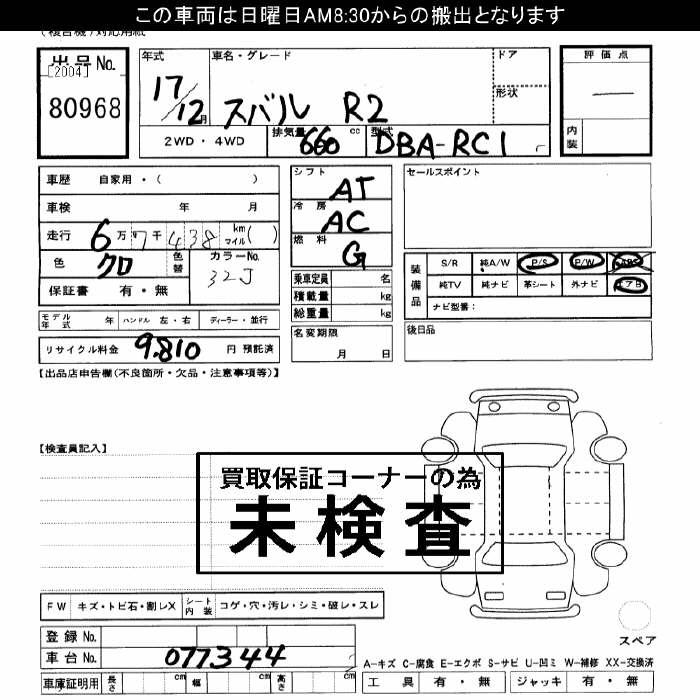 この車両は日曜日AM8:30からの搬出となります
(複合機)対応用紙
出品No.
[2004]
80968
年式 車名・グレード ドア
17/12月 スバル R2
形状
2WD・4WD 排気量 660 cc 型式 DBA-RC1
評価点
—
内装
車歴 自家用・( )
車検 年 月
走行 6万7千438 km マイル( )
色 クロ 色替 カラーNo. 32J
保証書 有・無
シフト AT
冷房 AC
燃料 G
乗車定員 名
積載量 kg
総重量 kg
セールスポイント
装備品 S/R 純A/W P/S P/W ABS
純TV 純ナビ 革シート 外ナビ エアB
ナビ型番:
モデル年式 年 ハンドル 左・右 ディーラー・並行
名変期限
月 日
後日品
リサイクル料金 9,810 円 預託済
【出品店申告欄(不良箇所・欠品・注意事項等)】
【検査員記入】
買取保証コーナーの為
未検査
FW キズ・トビ石・割レX シート内装 コゲ・穴・汚レ・シミ・破レ・スレ
スペア
登録No.
車台No. 077344
車庫証明用 長さ 幅 高さ
A-キズ C-腐食 E-エクボ S-サビ U-凹ミ W-補修 XX-交換済
工具 有・無 ジャッキ 有・無